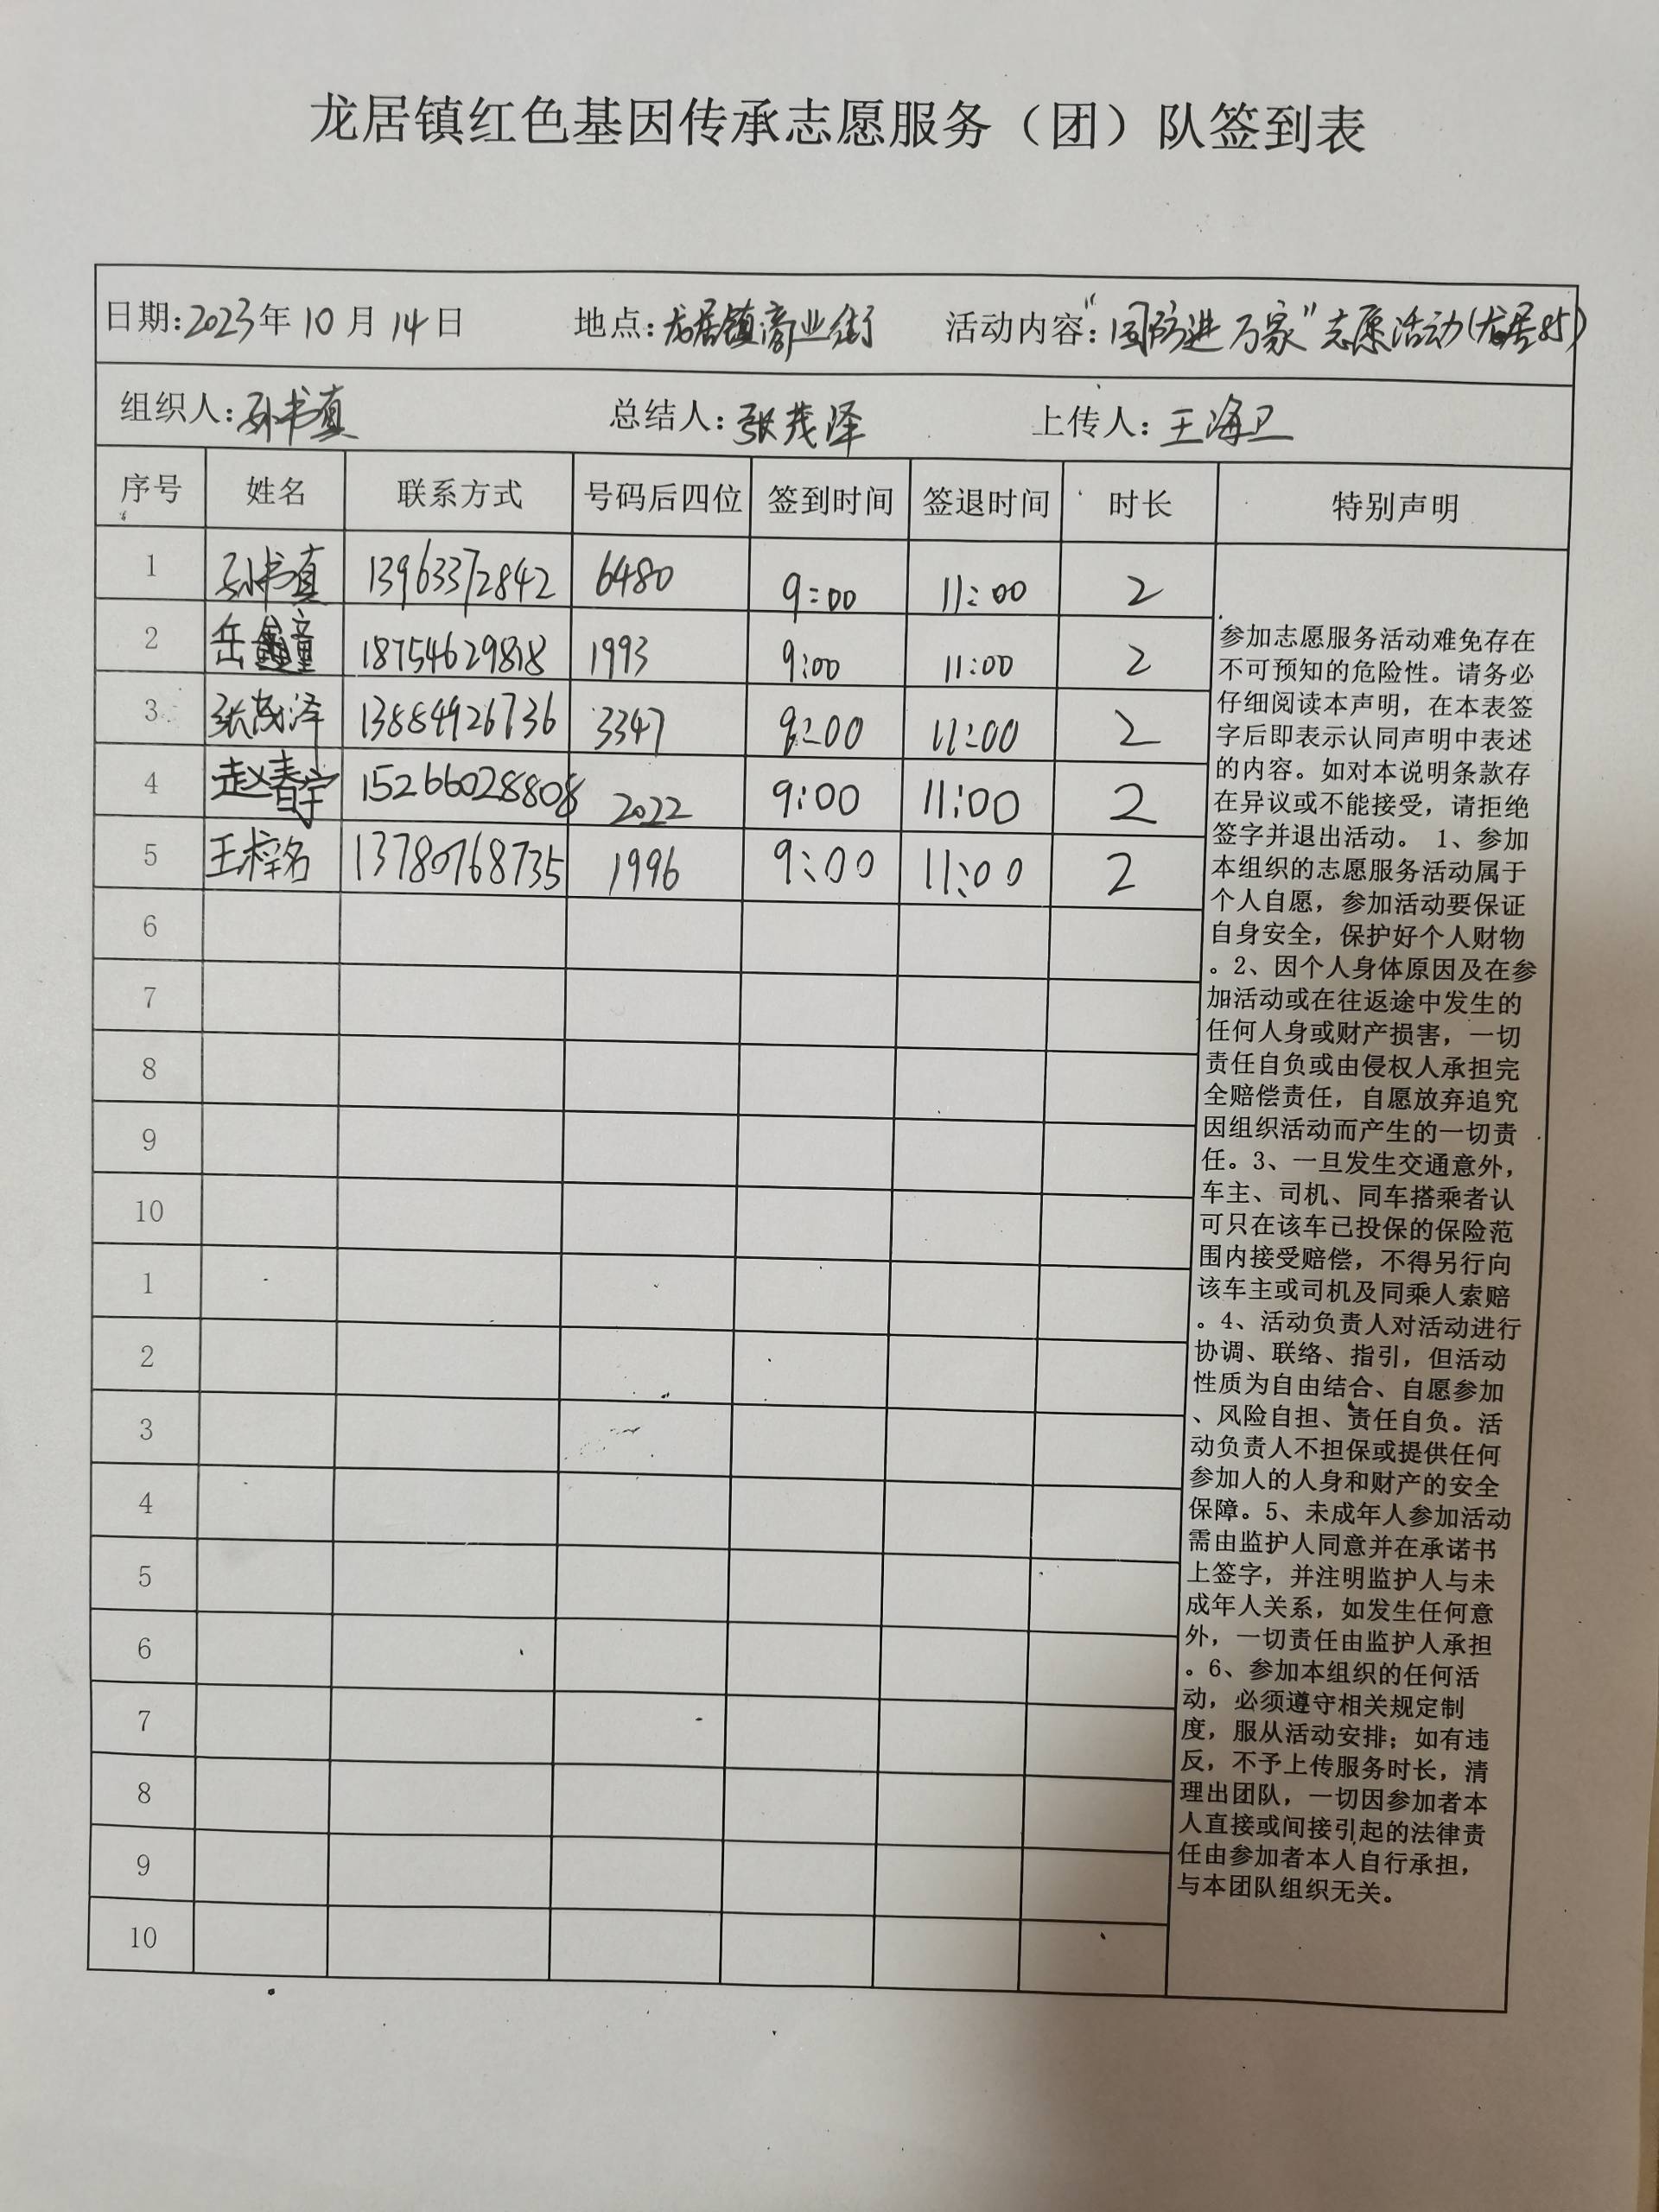 龙居镇红色基因传承志愿服务（团）队签到表
日期:2023年10月14日 地点:龙居镇商业街 活动内容:"国防进万家"志愿活动(龙居85)
组织人:孙书真 总结人:张茂泽 上传人:王海卫
序号 姓名 联系方式 号码后四位 签到时间 签退时间 时长 特别声明
1 孙书真 13963372842 6480 9:00 11:00 2
2 岳鑫童 18754629818 1993 9:00 11:00 2
3 张茂泽 13884926736 3347 9:00 11:00 2
4 赵春宇 15266028808 2022 9:00 11:00 2
5 王梓名 13780768735 1996 9:00 11:00 2
6
7
8
9
10
1
2
3
4
5
6
7
8
9
10
参加志愿服务活动难免存在
不可预知的危险性。请务必
仔细阅读本声明，在本表签
字后即表示认同声明中表述
的内容。如对本说明条款存
在异议或不能接受，请拒绝
签字并退出活动。 1、参加
本组织的志愿服务活动属于
个人自愿，参加活动要保证
自身安全，保护好个人财物
。2、因个人身体原因及在参
加活动或在往返途中发生的
任何人身或财产损害，一切
责任自负或由侵权人承担完
全赔偿责任，自愿放弃追究
因组织活动而产生的一切责
任。3、一旦发生交通意外，
车主、司机、同车搭乘者认
可只在该车已投保的保险范
围内接受赔偿，不得另行向
该车主或司机及同乘人索赔
。4、活动负责人对活动进行
协调、联络、指引，但活动
性质为自由结合、自愿参加
、风险自担、责任自负。活
动负责人不担保或提供任何
参加人的人身和财产的安全
保障。5、未成年人参加活动
需由监护人同意并在承诺书
上签字，并注明监护人与未
成年人关系，如发生任何意
外，一切责任由监护人承担
。6、参加本组织的任何活
动，必须遵守相关规定制
度，服从活动安排；如有违
反，不予上传服务时长，清
理出团队，一切因参加者本
人直接或间接引起的法律责
任由参加者本人自行承担，
与本团队组织无关。